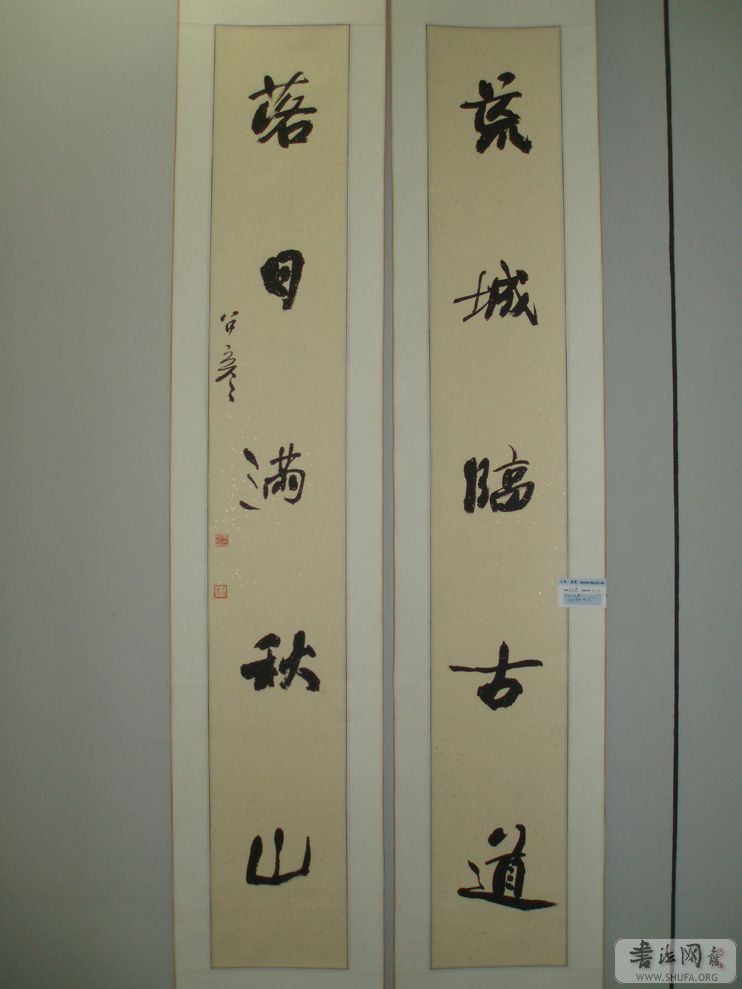 荒城臨古道
落日满秋山
書法网
WWW.SHUFA.ORG